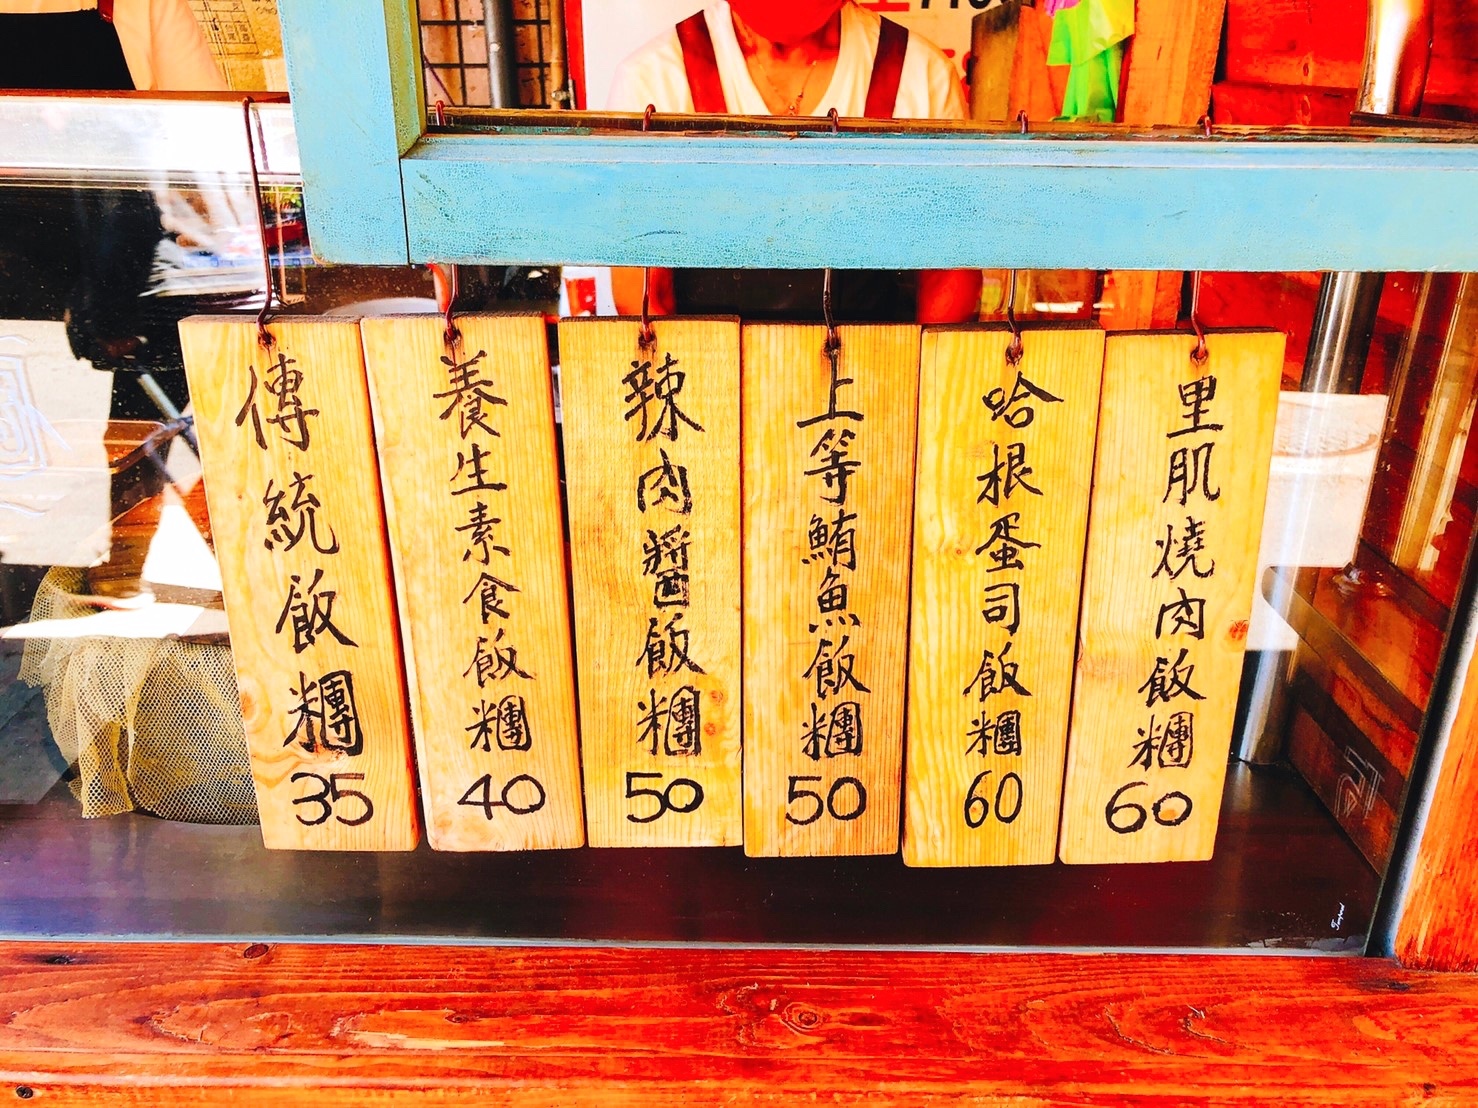 傳統飯糰35
養生素食飯糰40
辣肉醬飯糰50
上等鮪魚飯糰50
哈根蛋司飯糰60
里肌燒肉飯糰60